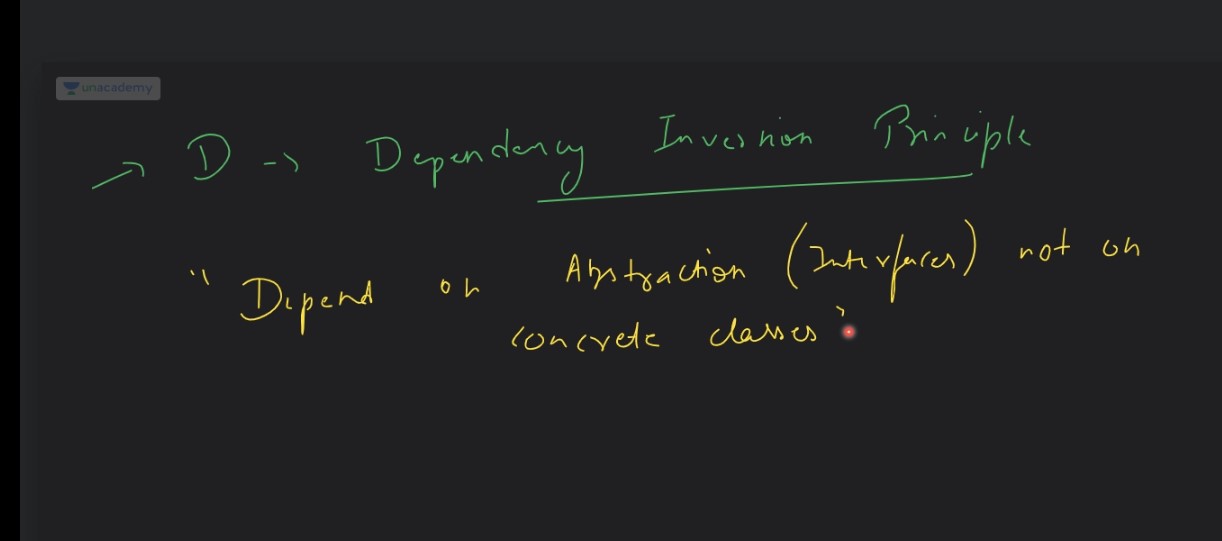 unacademy
→ D -> Dependency Inversion Principle
"Depend on Abstraction (Interfaces) not on
concrete classes"